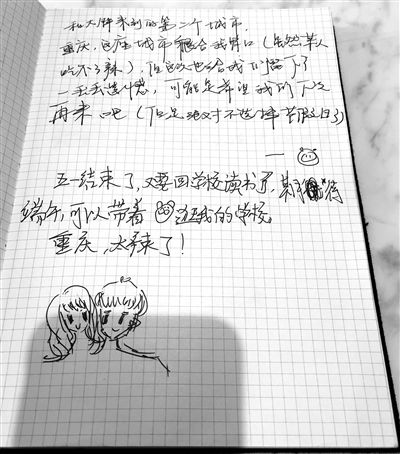 和大胖来到的第二个城市.
重庆,这座城市很合我胃口(虽然某人
吃不了辣),但这次也给我们留下了
一丢丢遗憾,可能是希望我们下次
再来吧(但是绝对不选择节假日了)
五一结束了,又要回学校读书了,期待
端午,可以带着 逛我的学校
重庆,太辣了!